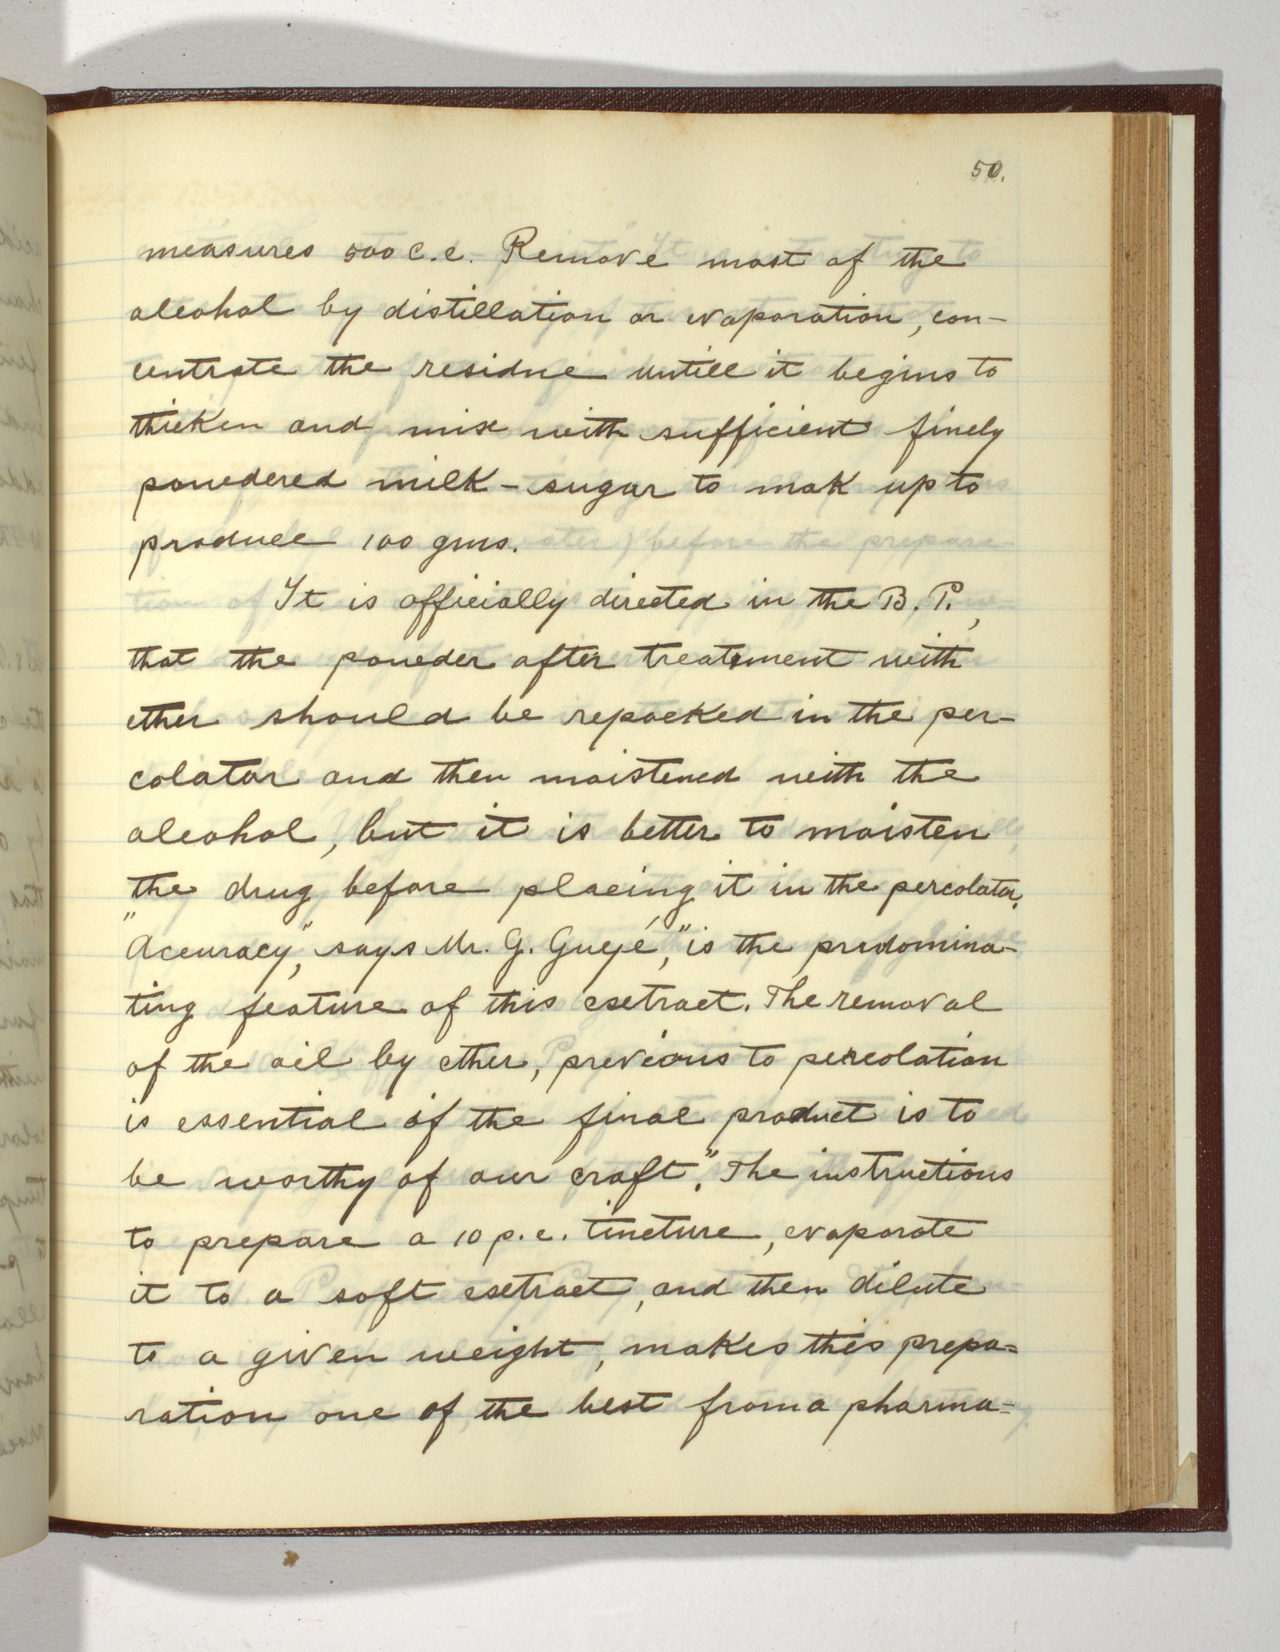 50.
measures 500 c.c. Remove most of the
alcohol by distillation or evaporation, con-
centrate the residue untill it begins to
thicken and mix with sufficient finely
powdered milk-sugar to mak up to
produce 100 gms.
It is officially directed in the B. P.,
that the powder after treatment with
ether should be repacked in the per-
colator and then moistened with the
alcohol, but it is better to moisten
the drug before placing it in the percolator.
"Accuracy," says Mr. G. Guyé, "is the predomina-
ting feature of this extract. The removal
of the oil by ether, previous to percolation
is essential if the final product is to
be worthy of our craft." The instructions
to prepare a 10 p.c. tincture, evaporate
it to a soft extract, and then dilute
to a given weight, makes this prepa-
ration one of the best from a pharma-